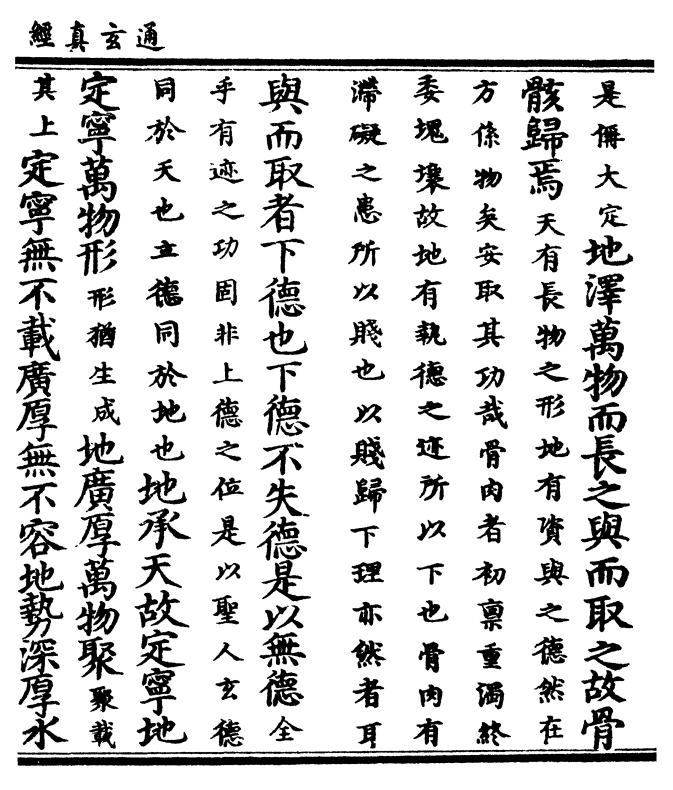 通玄真經
是傋大定地澤萬物而長之與而取之故骨
骸歸焉天有長物之形地有資與之德然在
方係物矣安取其功哉骨肉者初禀重濁終
委塊壤故地有執德之迹所以下也骨肉有
滯礙之患所以賤也以賤歸下理亦然者耳
與而取者下德也下德不失德是以無德全
乎有迹之功固非上德之位是以聖人玄德
同於天也立德同於地也地承天故定寧地
定寧萬物形形猶生成地廣厚萬物聚聚載
其上定寧無不載廣厚無不容地勢深厚水